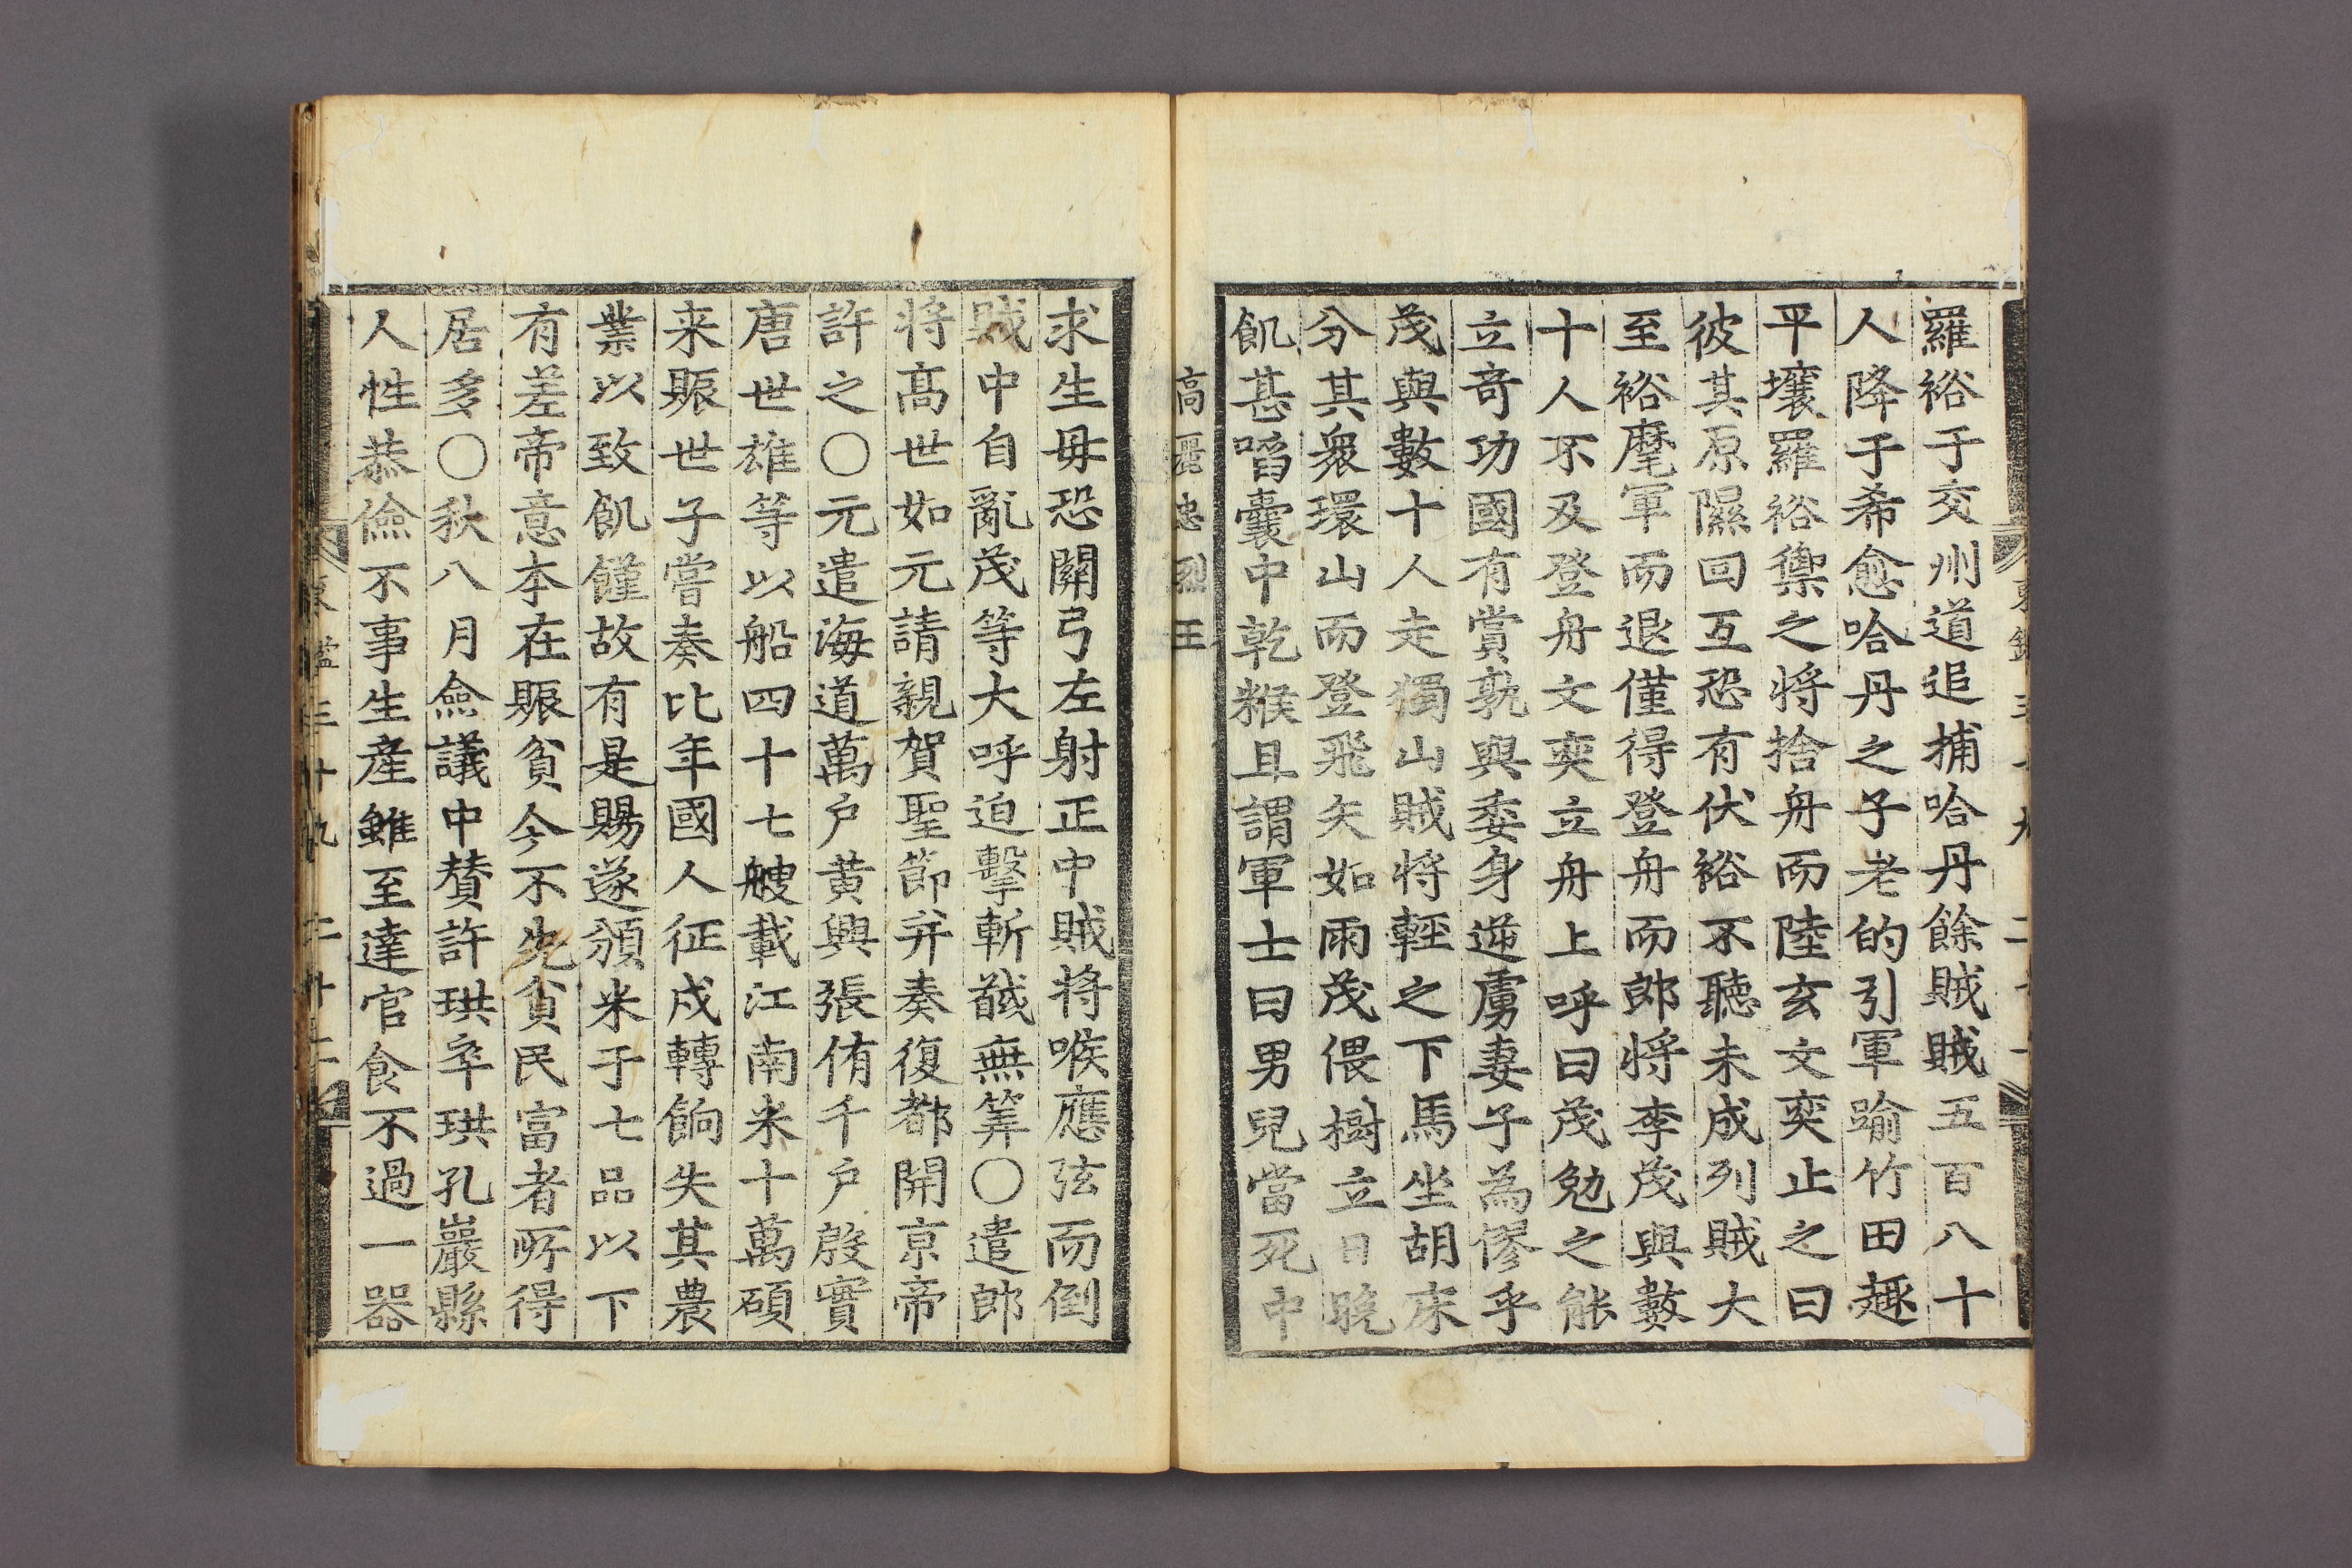 羅裕于交州道追捕哈丹餘賊賊五百八十
人降于希愈哈丹之子老的引軍踰竹田趣
平壤羅裕禦之將捨舟而陸玄文奕止之曰
彼其原隰回互恐有伏裕不聽未成列賊大
至裕麾軍而退僅得登舟而郎將李茂與數
十人不及登舟文奕立舟上呼曰茂勉之能
立奇功國有賞孰與委身逆虜妻子為僇乎
茂與數十人走獨山賊將輕之下馬坐胡床
分其衆環山而登飛矢如雨茂偎樹立日晚
飢甚啗囊中乾糇且謂軍士曰男兒當死中
高麗忠烈王
求生毋恐關弓左射正中賊將喉應弦而倒
賊中自亂茂等大呼迫擊斬馘無筭○遣郎
將高世如元請親賀聖節并奏復都開京帝
許之○元遣海道萬戶黃興張侑千戶殷實
唐世雄等以船四十七艘載江南米十萬碩
来賑世子嘗奏比年國人征戍轉餉失其農
業以致飢饉故有是賜遂頒米于七品以下
有差帝意本在賑貧今不先貧民富者所得
居多○秋八月僉議中贊許珙卒珙孔巖縣
人性恭儉不事生產雖至達官食不過一器